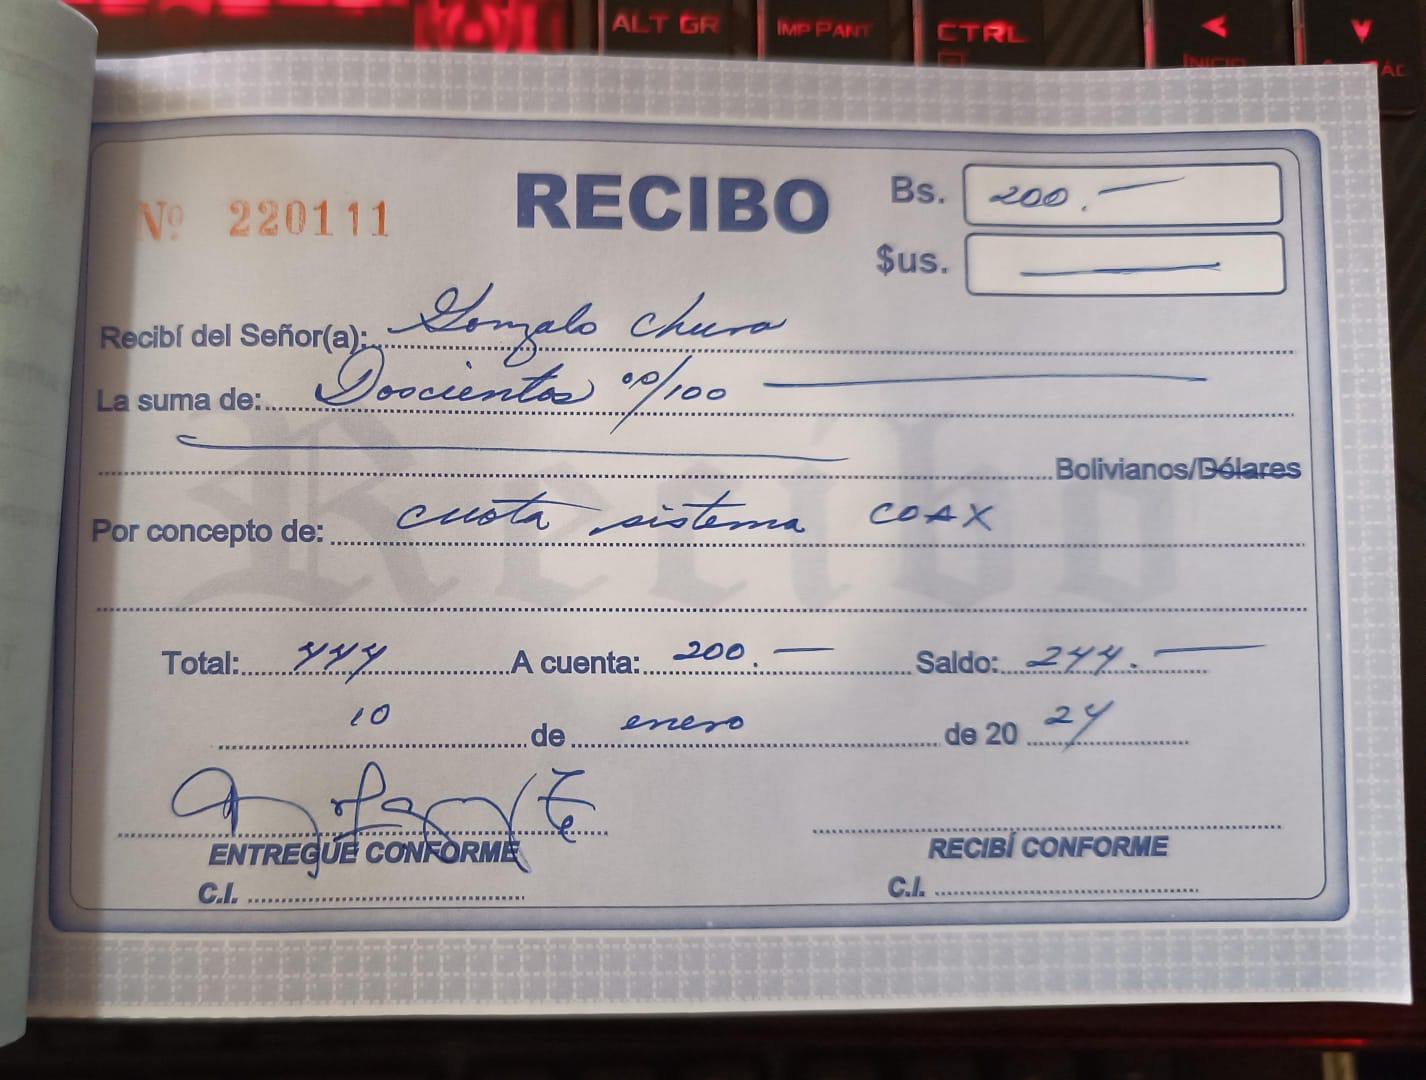 ALT GR IMP PANT CTRL INICIO
Nº 220111
RECIBO
Bs. 200.—
$us. —
Recibí del Señor(a): Gonzalo Chura
La suma de: Doscientos 00/100
Bolivianos/Dólares
Por concepto de: cuota sistema COAX
Recibo
Total: 444 A cuenta: 200.— Saldo: 244.—
10 de enero de 20 24
ENTREGUE CONFORME
RECIBÍ CONFORME
C.I.
C.I.